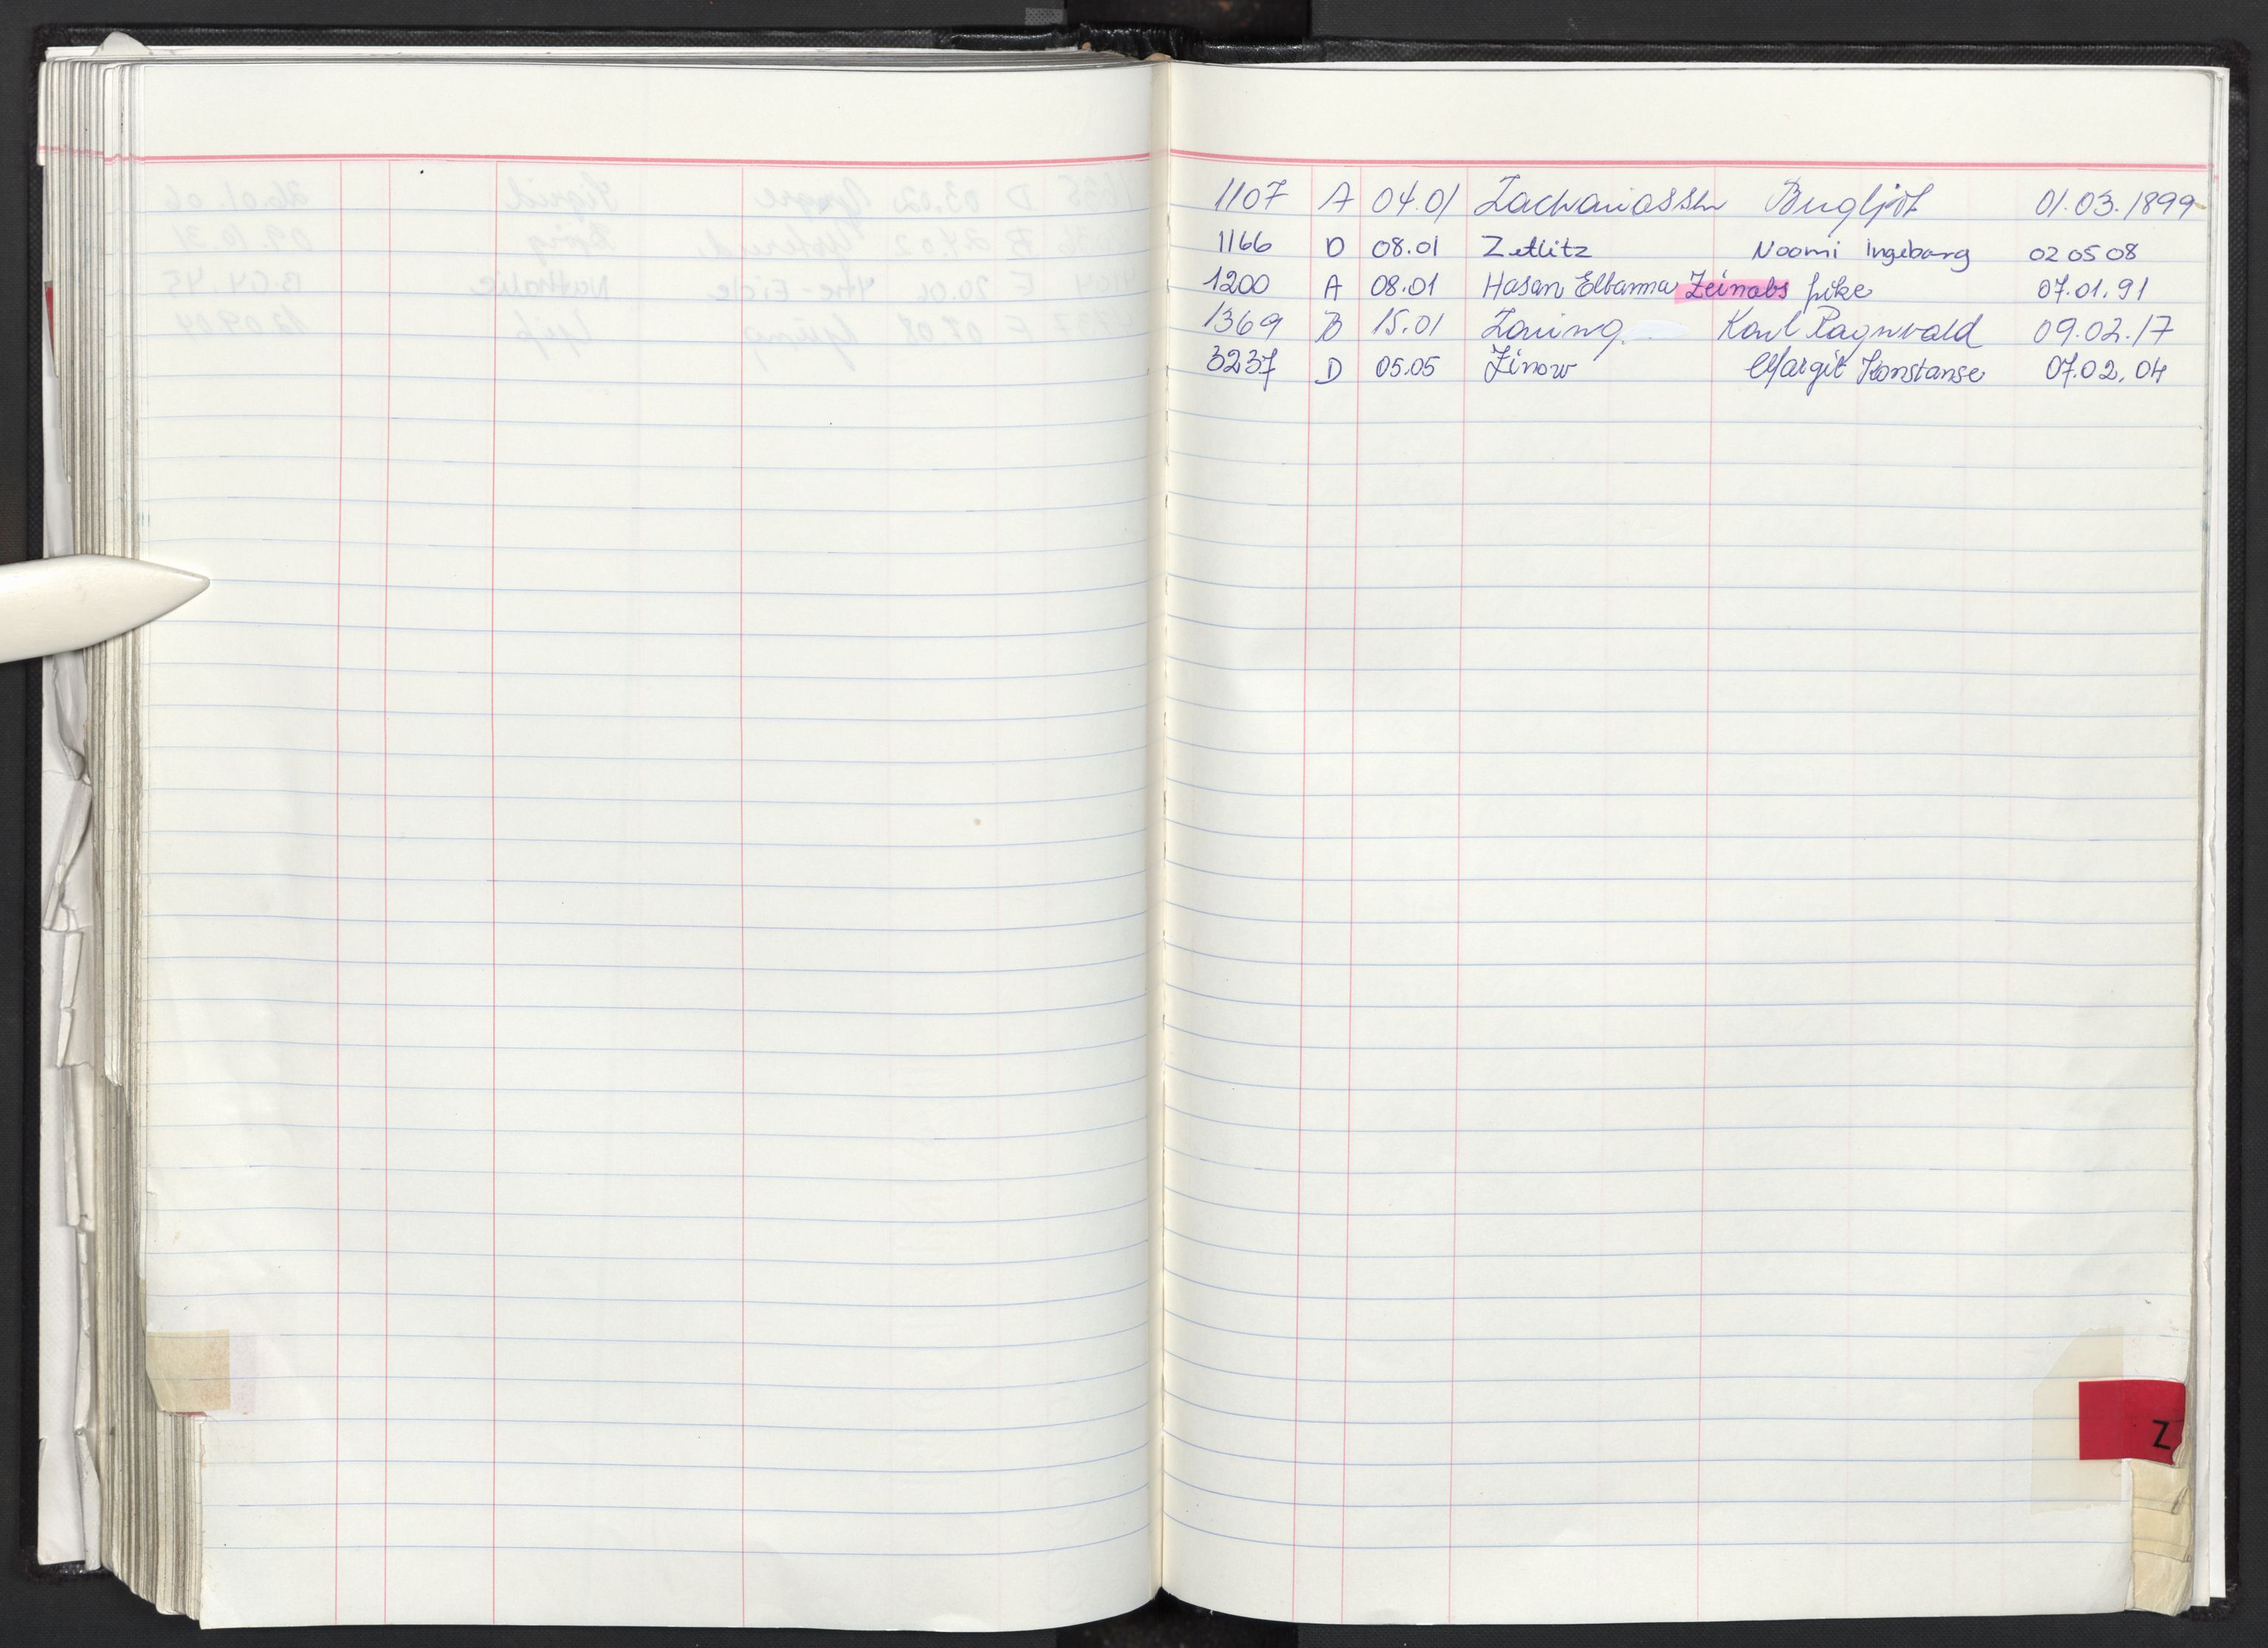 1107 A 04.01 Zachariassen Bergljot 01.03.1899
1166 D 08.01 Zetlitz Noomi Ingeborg 02 05 08
1200 A 08.01 Hasan Elbanna Zeinabs pike 07.01.91
1369 B 15.01 Karl Ragnvald 09.02.17
3237 D 05.05 Zinow Margit Konstanse 07.02.04
Z